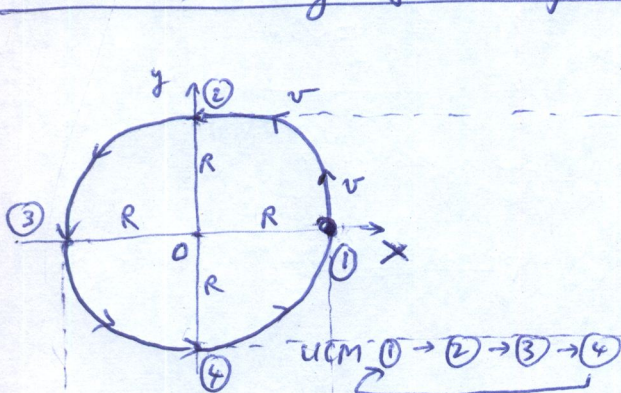 y ②
v
R
v
③ R R
O ① X
R
UCM ① → ② → ③ → ④
④